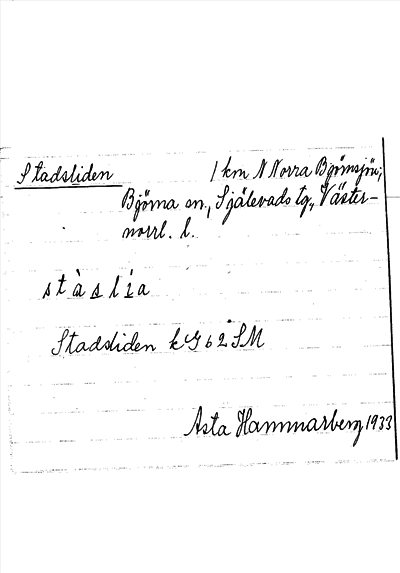 Stadsliden 1 km N Norra Björnsjön,
Björna sn, Själevads tg, Väster-
norrl. l.
stàslia
Stadsliden kG 62 SM
Asta Hammarberg 1933